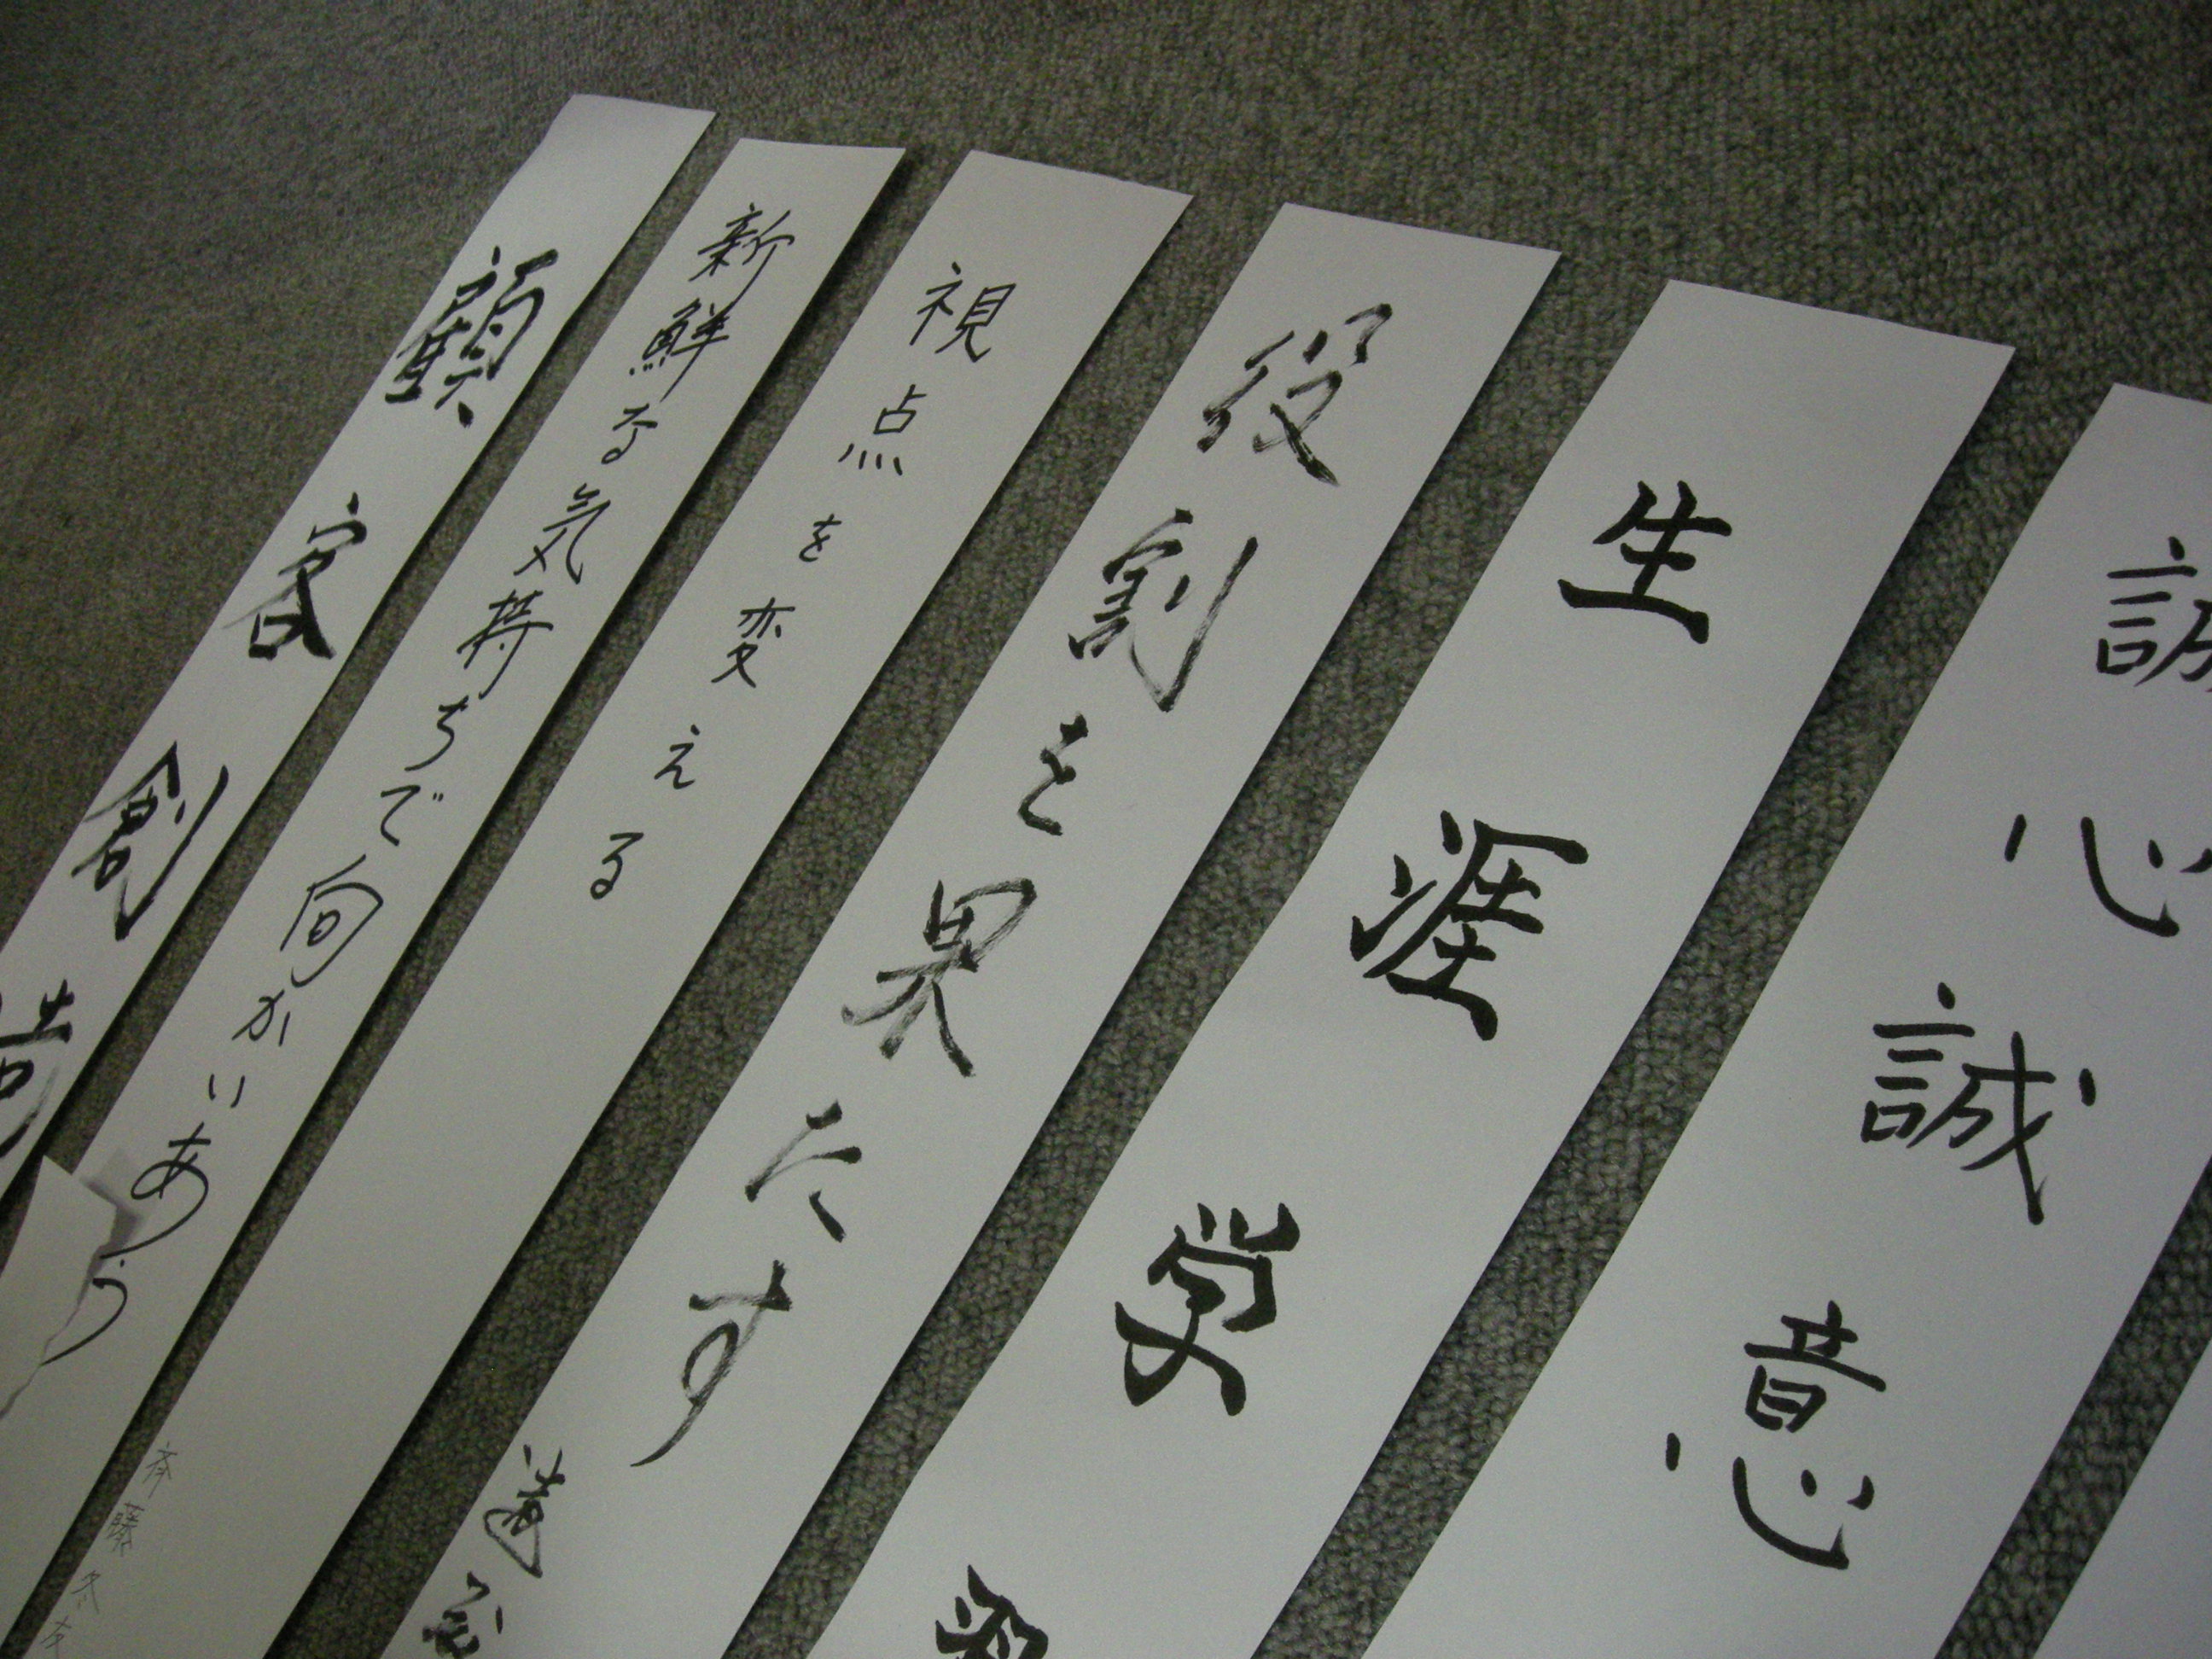 誠心誠意
生涯学習
役割を果たす
視点を変える
新鮮な気持ちで向かいあう
斉藤冬
顧客創造